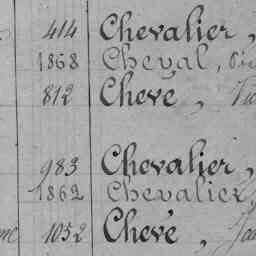 414 Chevalier,
1868 Cheval,
812 Chevé,
983 Chevalier,
1862 Chevalier,
1052 Chevé,